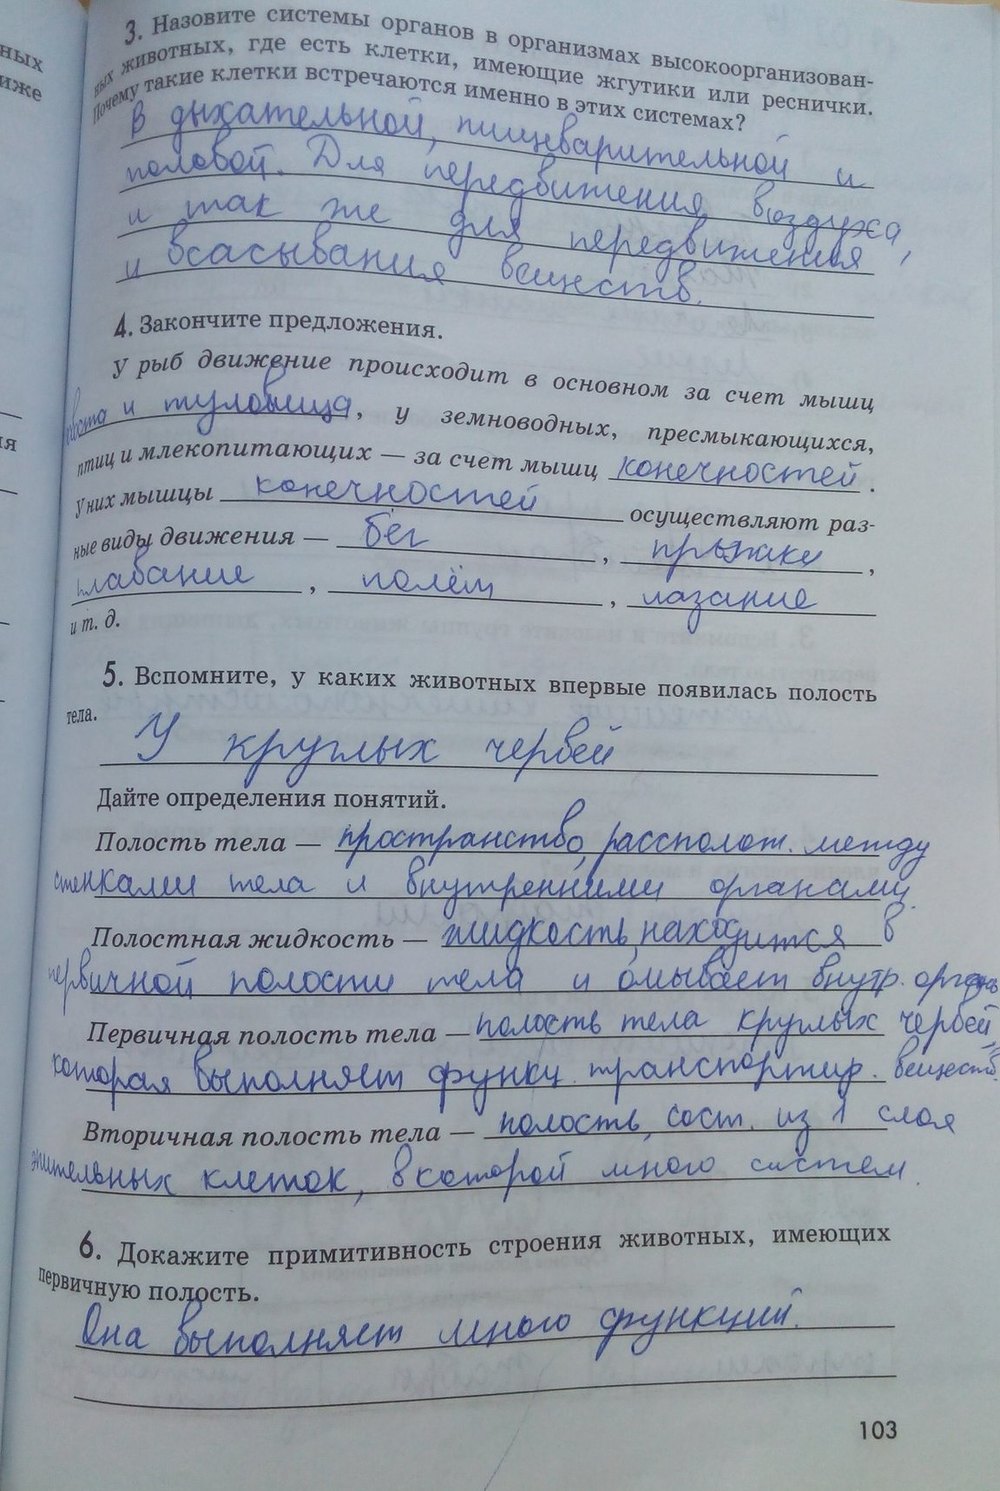 ных
иже
ия
3. Назовите системы органов в организмах высокоорганизован-
ных животных, где есть клетки, имеющие жгутики или реснички.
Почему такие клетки встречаются именно в этих системах?
В дыхательной, пищеварительной и
половой. Для передвижения воздуха,
и так же для передвижения
и всасывания веществ.
4. Закончите предложения.
У рыб движение происходит в основном за счет мышц
хвоста и туловища, у земноводных, пресмыкающихся,
птиц и млекопитающих — за счет мышц конечностей.
У них мышцы конечностей осуществляют раз-
ные виды движения — бег, прыжки,
плавание, полёт, лазание
и т. д.
5. Вспомните, у каких животных впервые появилась полость
тела.
У круглых червей
Дайте определения понятий.
Полость тела — пространство, рассполож. между
стенками тела и внутренними органами.
Полостная жидкость — жидкость, находится в
первичной полости тела и омывает внутр. органы
Первичная полость тела — полость тела круглых червей,
которая выполняет функц. транспортир. веществ.
Вторичная полость тела — полость, сост. из 1 слоя
эпительных клеток, в которой много систем.
6. Докажите примитивность строения животных, имеющих
первичную полость.
Она выполняет много функций.
103